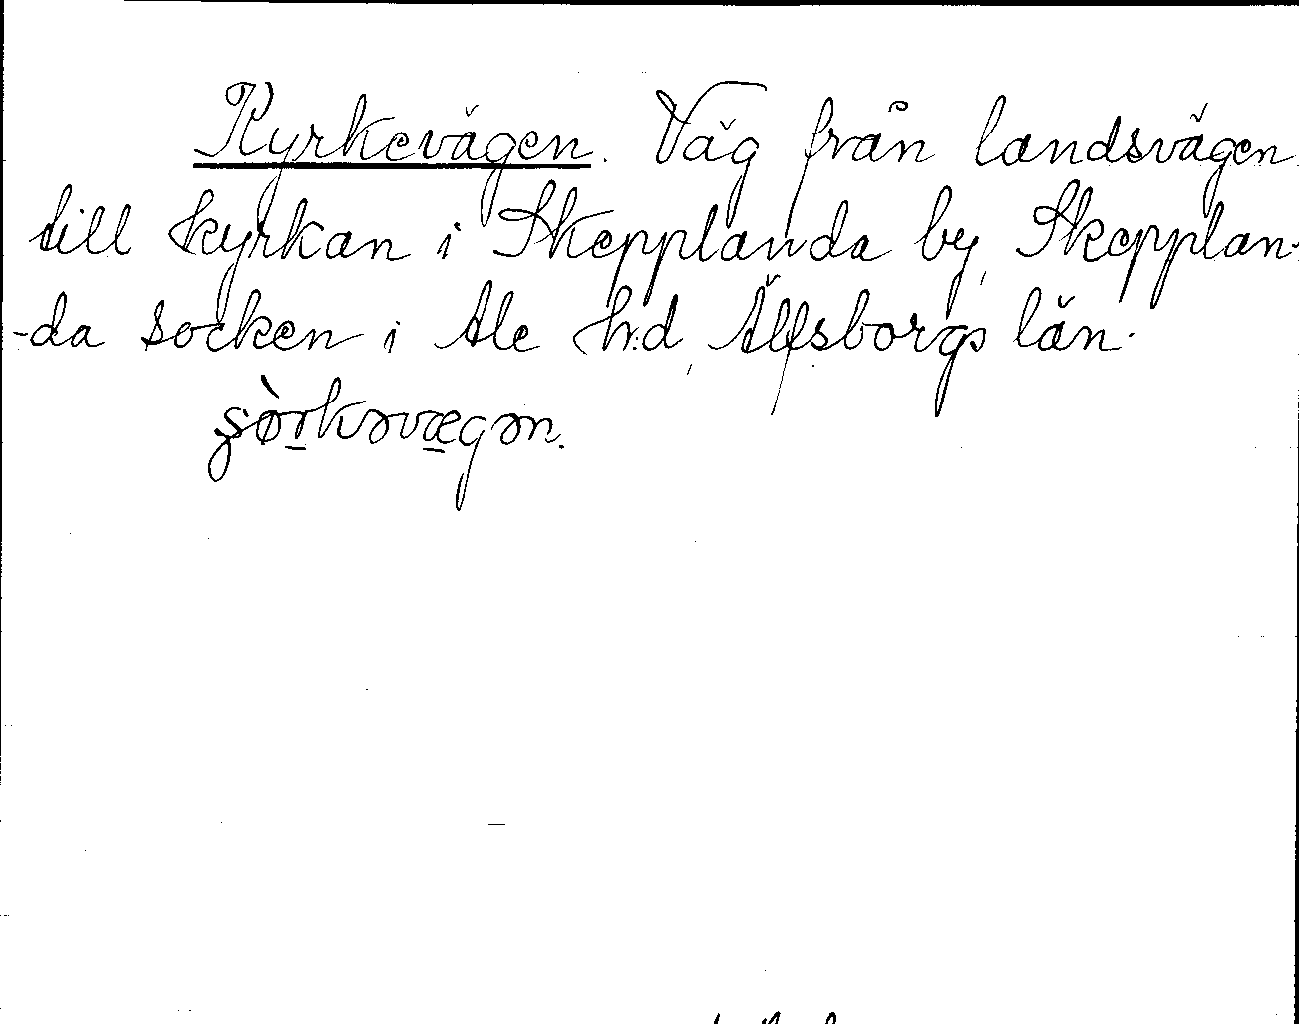 Kyrkevägen. Väg från landsvägen
till kyrkan i Skepplanda by, Skepplan-
-da socken i Ale h:d, Älfsborgs län.
ʂòrkəvægən.